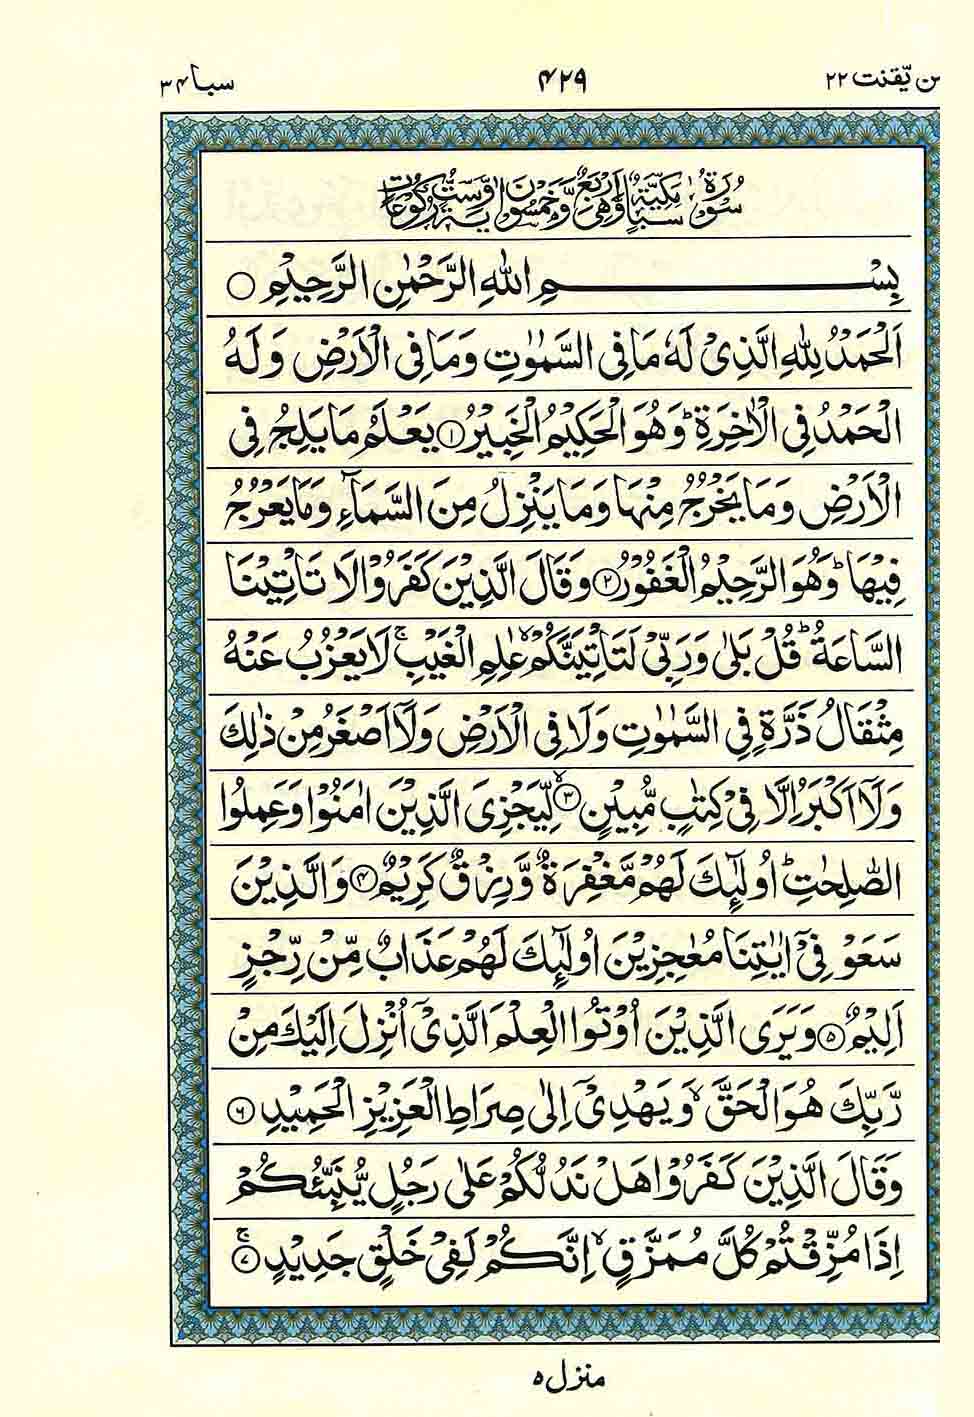 سبا ٣٤ ٤٢٩ من يّقنت ٢٢
سُوْرَةُ سَبَاٍ مَكِّيَّةٌ وَّهِيَ اَرْبَعٌ وَّخَمْسُوْنَ اٰيَةً وَّسِتُّ رُكُوْعَاتٍ
بِسْمِ اللّٰهِ الرَّحْمٰنِ الرَّحِيْمِ ○
اَلْحَمْدُ لِلّٰهِ الَّذِىْ لَهٗ مَا فِى السَّمٰوٰتِ وَمَا فِى الْاَرْضِ وَلَهُ
الْحَمْدُ فِى الْاٰخِرَةِ ؕ وَهُوَ الْحَكِيْمُ الْخَبِيْرُ ۝١ يَعْلَمُ مَا يَلِجُ فِى
الْاَرْضِ وَمَا يَخْرُجُ مِنْهَا وَمَا يَنْزِلُ مِنَ السَّمَآءِ وَمَا يَعْرُجُ
فِيْهَا ؕ وَهُوَ الرَّحِيْمُ الْغَفُوْرُ ۝٢ وَقَالَ الَّذِيْنَ كَفَرُوْا لَا تَاْتِيْنَا
السَّاعَةُ ؕ قُلْ بَلٰى وَرَبِّىْ لَتَاْتِيَنَّكُمْ ۙ عٰلِمِ الْغَيْبِ ۚ لَا يَعْزُبُ عَنْهُ
مِثْقَالُ ذَرَّةٍ فِى السَّمٰوٰتِ وَلَا فِى الْاَرْضِ وَلَاۤ اَصْغَرُ مِنْ ذٰلِكَ
وَلَاۤ اَكْبَرُ اِلَّا فِىْ كِتٰبٍ مُّبِيْنٍ ۝٣ ۙ لِّيَجْزِىَ الَّذِيْنَ اٰمَنُوْا وَعَمِلُوا
الصّٰلِحٰتِ ؕ اُولٰٓئِكَ لَهُمْ مَّغْفِرَةٌ وَّرِزْقٌ كَرِيْمٌ ۝٤ وَالَّذِيْنَ
سَعَوْ فِىْۤ اٰيٰتِنَا مُعٰجِزِيْنَ اُولٰٓئِكَ لَهُمْ عَذَابٌ مِّنْ رِّجْزٍ
اَلِيْمٌ ۝٥ وَيَرَى الَّذِيْنَ اُوْتُوا الْعِلْمَ الَّذِىْۤ اُنْزِلَ اِلَيْكَ مِنْ
رَّبِّكَ هُوَ الْحَقَّ ۙ وَيَهْدِىْۤ اِلٰى صِرَاطِ الْعَزِيْزِ الْحَمِيْدِ ۝٦
وَقَالَ الَّذِيْنَ كَفَرُوْا هَلْ نَدُلُّكُمْ عَلٰى رَجُلٍ يُّنَبِّئُكُمْ
اِذَا مُزِّقْتُمْ كُلَّ مُمَزَّقٍ ۙ اِنَّكُمْ لَفِىْ خَلْقٍ جَدِيْدٍ ۝٧ ۚ
منزل ٥